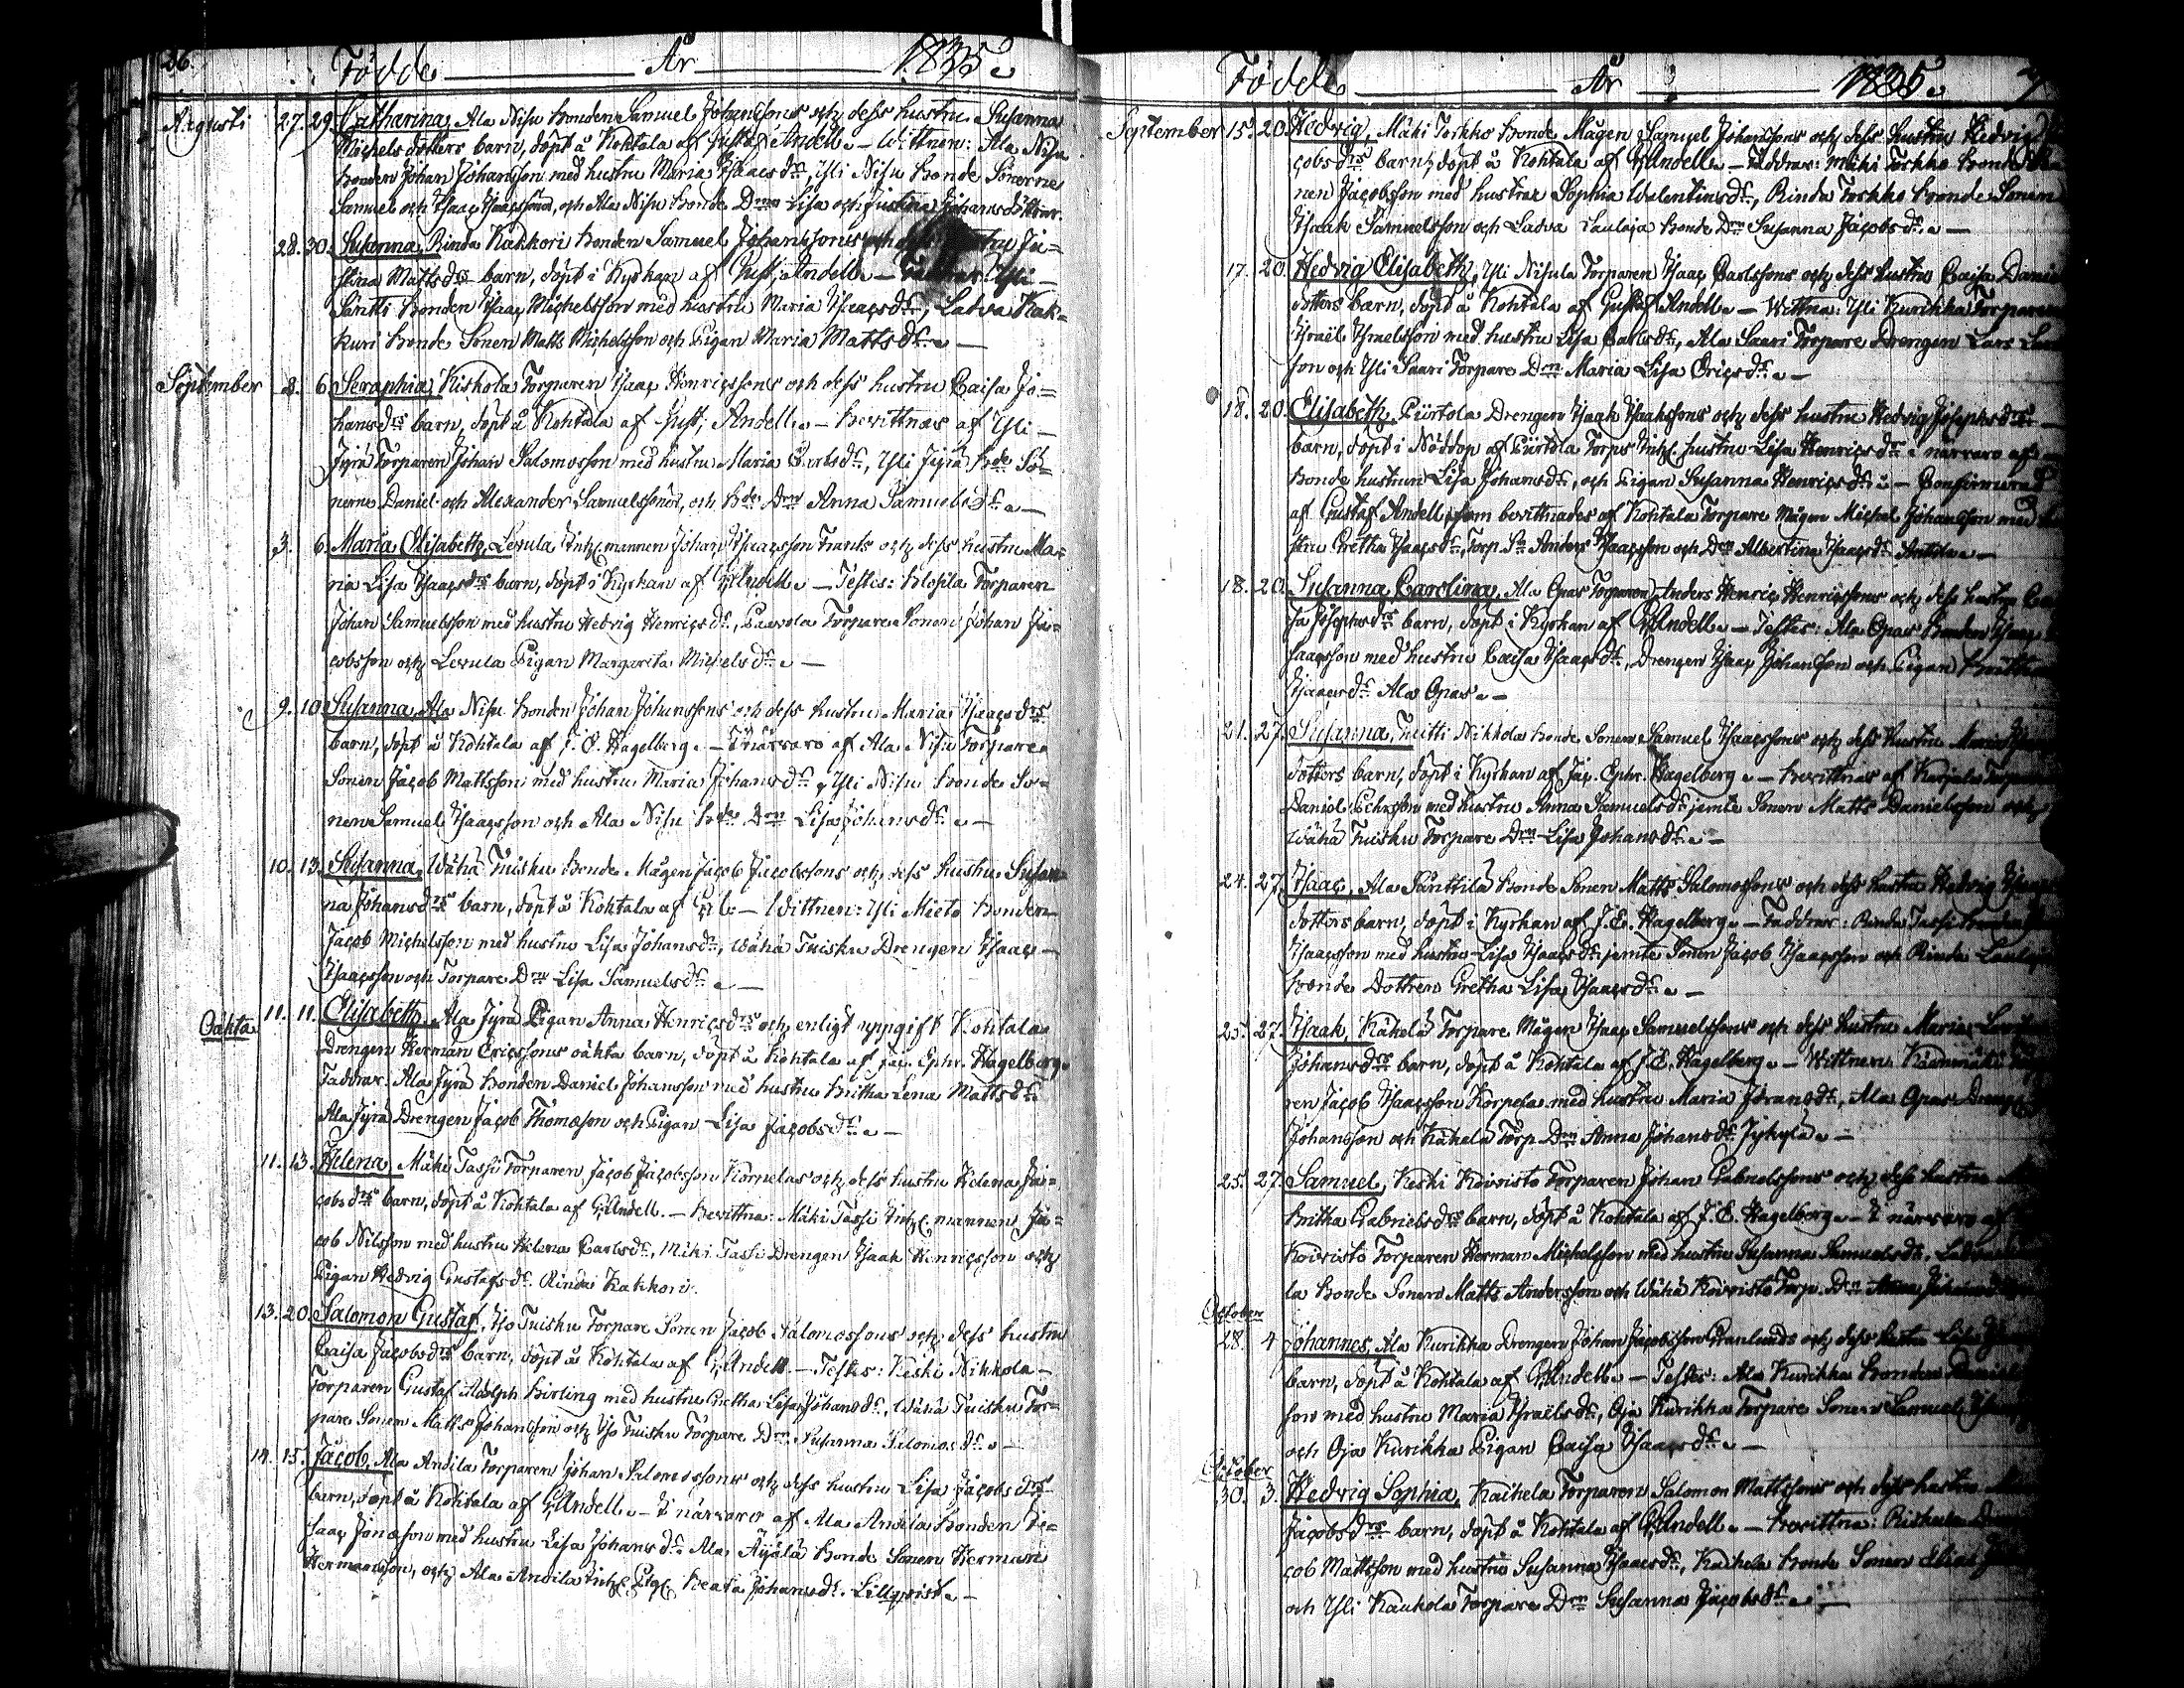 26.
Födde År 1835.
Augusti 27. 29. Catharina, Ala Nisu Bonden Samuel Johanssons och dess hustru Susanna
Michelsdotters barn, döpt å Kohtala af Gustaf Andell. – Wittnen: Ala Nisu
Bonden Johan Johansson med hustru Maria Isaacs dr, Yli Nisu Bonde Sönerne
Samuel och Isaac Isaacssöner, och Ala Nisu Bonde Drna Lisa och Justina Johansdöttrar.
28. 30. Susanna, Rinda Kakkori Bonden Samuel Johanssons och dess hustru Ju=
stina Matts drs barn, döpt i Kyrkan af Gust. Andell. – Faddrar: Yli
Säntti Bonden Isaac Michelsson med hustru Maria Isaacs dr, Latva Kak=
kuri Bonde Sonen Matts Michelsson och Pigan Maria Matts dr. –
September 2. 6. Seraphia, Kiskola Torparen Isaac Henricssons och dess hustru Caisa Jo=
hans drs barn, döpt å Kohtala af Gust. Andell. – Bevittnas af Yli
Jyrä Torparen Johan Salomosson med hustru Maria Carls dr, Yli Jyrä Bde Sö=
nerne Daniel och Alexander Samuelssöner, och Bde Drn Anna Samuels dr. –
3. 6. Maria Elisabeth, Levula Inh. mannen Johan Isaacsson Frants och dess hustru Ma=
ria Lisa Isaacs drs barn, döpt i Kyrkan af G. Andell. – Testes: Klosila Torparen
Johan Samuelsson med hustru Hedvig Henrics dr, Paavola Torpare Sonen Johan Ja=
cobsson och Levula Pigan Margareta Michels dr. –
9. 10. Susanna, Ala Nisu Bonden Johan Johanssons och dess hustru Maria Isaacs drs
barn, döpt å Kohtala af J. E. Hagelberg. – I närvaro af Ala Nisu Torpare
Sonen Jacob Mattsson med hustru Maria Johans dr, Yli Nisu Bonde So=
nen Samuel Isaacsson och Ala Nisu Bde Drn Lisa Johans dr. –
10. 13. Susanna, Wähä Tuisku Bonde Mågen Jacob Jacobssons och dess hustru Susan=
na Johans drs barn, döpt å Kohtala af – Wittnen: Yli Mieto Bonden
Jacob Michelsson med hustru Lisa Johans dr, Wähä Tuisku Drengen Isaac
Isaacsson och Torpare Drn Lisa Samuels dr. –
Oäkta 11. 11. Elisabeth, Ala Jyrä Pigan Anna Henrics drs och enligt uppgift Kohtala
Drengen Herman Ericssons oäkta barn, döpt å Kohtala af Jac. Ephr. Hagelberg.
Faddrar: Ala Jyrä Bonden Daniel Johansson med hustru Britha Lena Matts dr
Ala Jyrä Drengen Jacob Thomæson och Pigan Lisa Jacobs dr. –
11. 13. Helena, Mäki Tassi Torparen Jacob Jacobsson Kornelas och dess hustru Helena Ja=
cobs drs barn, döpt å Kohtala af G. Andell. – Bevittna: Mäki Tassi Inh. mannen Ja=
cob Nilsson med hustru Helena Carls dr, Mäki Tassi Drengen Isaak Henricsson och
Pigan Hedvig Gustafs dr. Rinda Kakkori.
13. 20. Salomon Gustaf, Iso Tuisku Torpare Sonen Jacob Salomossons och dess hustru
Caisa Jacobs drs barn, döpt å Kohtala af G. Andell. – Testes: Keski Nikkola
Torparen Gustaf Adolph Birling med hustru Gretha Lisa Johans dr, Wähä Tuisku Tor=
pare Sonen Matts Johansson och Iso Tuisku Torpare Drn Susanna Salomos dr. –
14. 15. Jacob, Ala Andila Torparen Johan Salomossons och dess hustru Lisa Jacobs drs
barn, döpt å Kohtala af G. Andell. – I närvaro af Ala Andila Bonden I=
saac Jonæson med hustru Lisa Johans dr. Ala Äijälä Bonde Sonen Herman
Hermansson, och Ala Andila Inh. Pig. Beata Johans dr. Lillqvist. –
Födde År 1835.
September 15. 20. Hedvig, Mäki Torkko Bonde Mågen Samuel Johanssons och dess hustru Hedvig
cobs drs barn, döpt å Kohtala af G. Andell. – Faddrar: Mäki Torkko Bonde
nen Jacobsson med hustru Sophia Walentins dr, Rinda Torkko Bonde Sonen
Isaak Samuelsson och Latva Laulaja Bonde Drn Susanna Jacobs dr. –
17. 20. Hedvig Elisabeth, Yli Nisula Torparen Isaac Carlssons och dess hustru Caisa Daniels
dotters barn, döpt å Kohtala af Gustaf Andell. – Wittna: Yli Kurikka Torparen
Israël Israelsson med hustru Lisa Carls dr, Ala Saari Torpare Drengen Lars
son och Yli Saari Torpare Drn Maria Lisa Erics dr. –
18. 20. Elisabeth, Piirtola Drengen Isaak Isaakssons och dess hustru Hedvig Josephs drs
barn, döpt i Nöddop af Piirtola Torps Inh. hustru Lisa Henrics dr i närvaro af
Bonde hustrun Lisa Johans dr, och Pigan Susanna Henrics dr. – Confirmerad
af Gustaf Andell, som bevittnades af Kohtala Torpare Mågen Michel Johansson med hu
stru Gretha Isaacs dr, Torp. Sn Anders Isaacsson och Drn Albertina Isaacs dr Anttila. –
18. 20. Susanna Carolina, Ala Opas Torparen Anders Henric Henricssons och dess hustru Cai
sa Josephs drs barn, döpt i Kyrkan af G. Andell. – Testes: Ala Opas Bonden Isaac
Isaacsson med hustru Caisa Isaacs dr, Drengen Isaac Johansson och Pigan Britha
Isaacs dr. Ala Opas. –
21. 27. Susanna, Tuitti Nikkola Bonde Sonen Samuel Isaacssons och dess hustru Maria
dotters barn, döpt i Kyrkan af Jac. Ephr. Hagelberg. – Bevittnas af Karjala Torparen
Daniel Ephrsson med hustru Anna Samuels dr jemte Sonen Matts Danielsson och
Wähä Tuisku Torpare Drn Lisa Johans dr. –
24. 27. Isaac, Ala Sänttilä Bonde Sonen Matts Salomossons och dess hustru Hedvig Isaacs
dotters barn, döpt i Kyrkan af J. E. Hagelberg. – Faddrar: Rinda Tassi Bonden
Isaacsson med hustru Lisa Isaacs dr jemte Sonen Jacob Isaacsson och Rinda Laulaja
Bonde Dottren Gretha Lisa Isaacs dr. –
25. 27. Isaak, Käkelä Torpare Mågen Isaac Samuelssons och dess hustru Maria
Johans drs barn, döpt å Kohtala af J. E. Hagelberg. – Wittnen:
ren Jacob Isaacsson Korpela med hustru Maria Jörans dr, Ala Opas Dreng
Johansson och Käkelä Torp. Drn Anna Johans dr Jykylä. –
25. 27. Samuel, Keski Koivisto Torparen Johan Gabrielssons och dess hustru
Britha Gabriels drs barn, döpt å Kohtala af J. E. Hagelberg. – I närvaro af
Koivisto Torparen Herman Michelsson med hustru Susanna Samuels dr,
la Bonde Sonen Matts Andersson och Wähä Koivisto Torp. Drn Anna Johans dr
October
28. 4. Johannes, Ala Kurikka Drengen Johan Jacobsson Granlunds och dess hustru Lisa
barn, döpt å Kohtala af G. Andell. – Testes: Ala Kurikka Bonden Daniel
son med hustru Maria Israëls dr, Oja Kurikka Torpare Sonen Samuel
och Oja Kurikka Pigan Caisa Isaacs dr. –
October
30. 3. Hedvig Sophia, Kaihela Torparen Salomon Mattssons och dess hustru
Jacobs drs barn, döpt å Kohtala af G. Andell. – Bevittna:
cob Mattsson med hustru Susanna Isaacs dr, Kaihela Bonde Sonen Elias
och Yli Kauhola Torpare Drn Susanna Jacobs dr. –